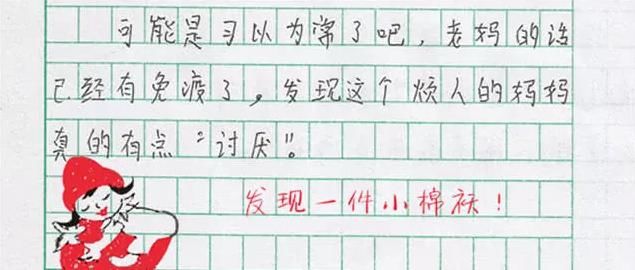 可能是习以为常了吧，老妈的话
已经有免疫了，发现这个烦人的妈妈
真的有点“讨厌”。
发现一件小棉袄！